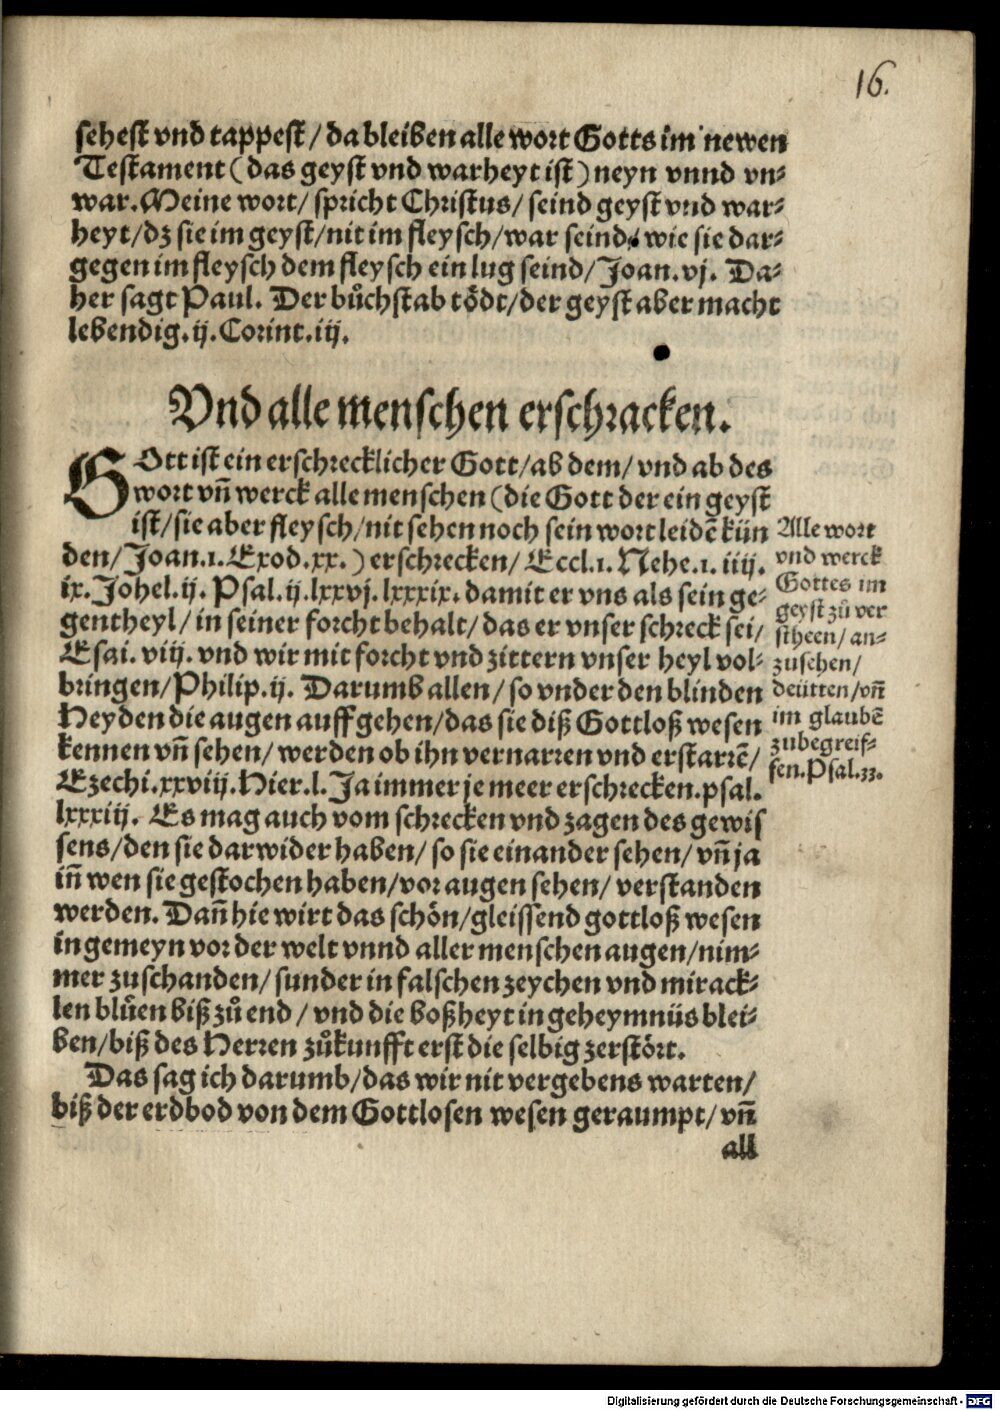 16.
sehest vnd tappest / da bleiben alle wort Gotts im newen
Testament (das geyst vnd warheyt ist) neyn vnnd vn⸗
war. Meine wort / spricht Christus / seind geyst vnd war⸗
heyt / dz sie im geyst / nit im fleysch / war seind, wie sie dar⸗
gegen im fleysch dem fleysch ein lug seind / Joan. vj. Da⸗
her sagt Paul. Der bůchstab tödt / der geyst aber macht
lebendig. ij. Corint. iij.
Vnd alle menschen erschracken.
GOtt ist ein erschrecklicher Gott / ab dem / vnd ab des
wort vñ werck alle menschen (die Gott der ein geyst
ist / sie aber fleysch / nit sehen noch sein wort leidē kün
den / Joan. 1. Exod. xx.) erschrecken / Eccl. 1. Nehe. 1. iiij.
ix. Johel. ij. Psal. ij. lxxvj. lxxxix. damit er vns als sein ge⸗
gentheyl / in seiner forcht behalt / das er vnser schreck sei /
Esai. viij. vnd wir mit forcht vnd zittern vnser heyl vol⸗
bringen / Philip. ij. Darumb allen / so vnder den blinden
Heyden die augen auffgehen / das sie diß Gottloß wesen
kennen vñ sehen / werden ob ihn vernarren vnd erstarrē /
Ezechi. xxviij. Hier. l. Ja immer je meer erschrecken. psal.
lxxxiij. Es mag auch vom schrecken vnd zagen des gewis
sens / den sie darwider haben / so sie einander sehen / vñ ja
iñ wen sie gestochen haben / vor augen sehen / verstanden
werden. Dañ hie wirt das schön / gleissend gottloß wesen
in gemeyn vor der welt vnnd aller menschen augen / nim⸗
mer zuschanden / sunder in falschen zeychen vnd mirack⸗
len blůen biß zů end / vnd die boßheyt in geheymnüs blei⸗
ben / biß des Herren zůkunfft erst die selbig zerstört.
Das sag ich darumb / das wir nit vergebens warten /
biß der erdbod von dem Gottlosen wesen geraumpt / vñ
all
Alle wort
vnd werck
Gottes im
geyst zů ver
stheen / an⸗
zusehen /
deütten / vñ
im glaubē
zubegreif⸗
fen. Psal. 33.
Digitalisierung gefördert durch die Deutsche Forschungsgemeinschaft - DFG